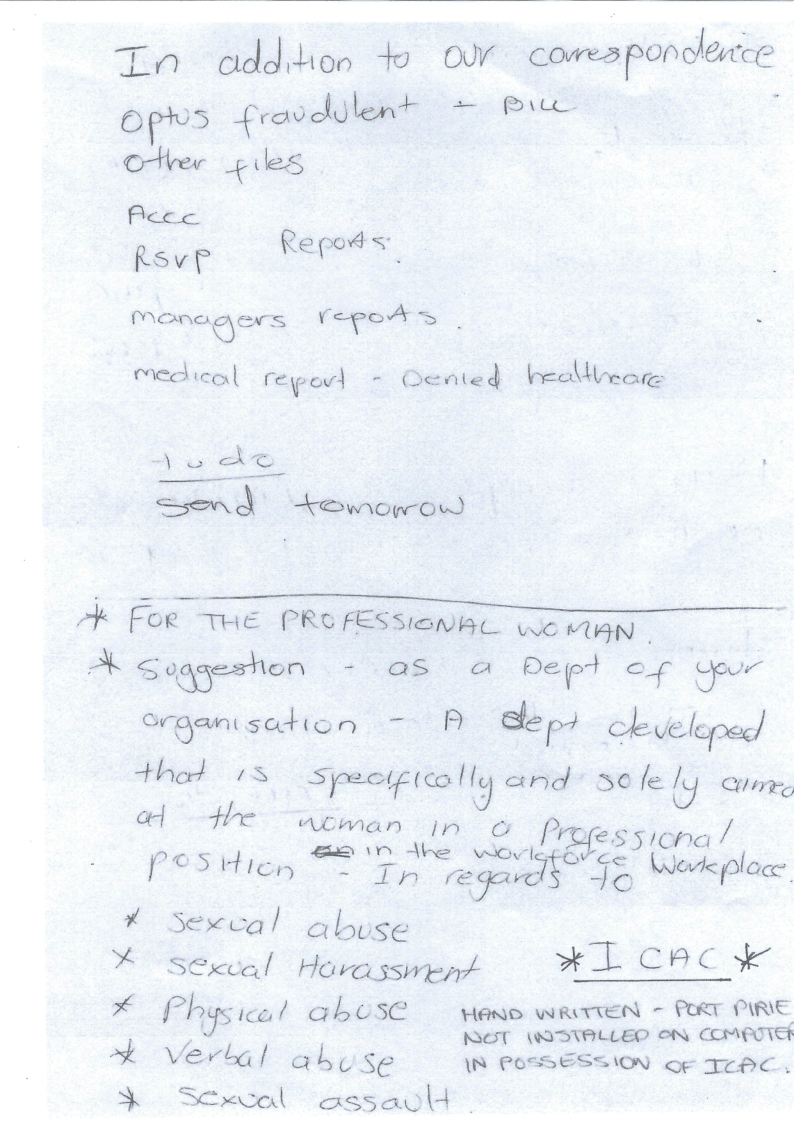 In addition to our correspondence
Optus fraudulent + BILL
Other files
Accc
RSVP Reports.
managers reports.
medical report - Denied healthcare
to do
Send tomorrow
* FOR THE PROFESSIONAL WOMAN.
* Suggestion - as a Dept of your
organisation - A dept developed
that is specifically and solely aimed
at the woman in a Professional
position in the workforce
- In regards to Workplace.
* Sexual abuse
* Sexual Harassment
* Physical abuse
* Verbal abuse
* Sexual assault.
* I CAC *
HAND WRITTEN - PORT PIRIE
NOT INSTALLED ON COMPUTER
IN POSSESSION OF ICAC.